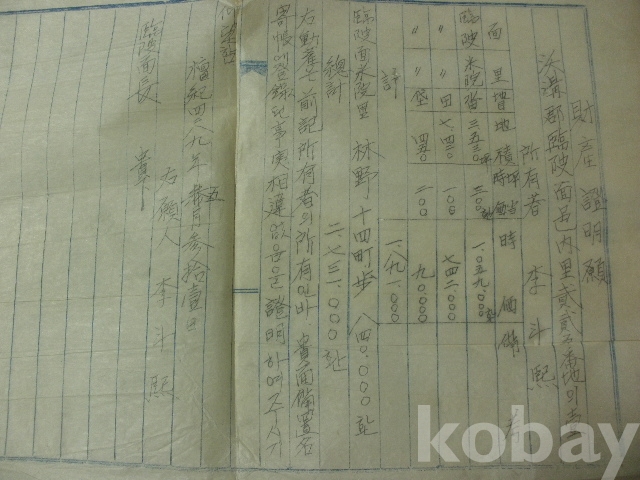 財産證明願
沃溝郡臨陂面邑内里貳貳五番地의壹
所有者 李斗熙
面 里 地 積 時 價 備考
臨陂 永 畓 三五三〇坪 三〇〇 一.〇五九.〇〇〇
〃 〃 田 七.四二〇 一〇〇 七四二.〇〇〇
〃 〃 垈 四五〇 二〇〇 九〇.〇〇〇
計 一.八九一.〇〇〇
臨陂面永 里 林野 十四町歩 八四〇.〇〇〇환
總計 二.七三一.〇〇〇환
右動産은 前記所有者의 所有인바 貴面備置名
寄帳에 登錄된 事實 相違없음을 證明하여주시기
檀紀四二八九年 五月參拾壹日
右願人 李斗熙
臨陂面長 貴下
kobay